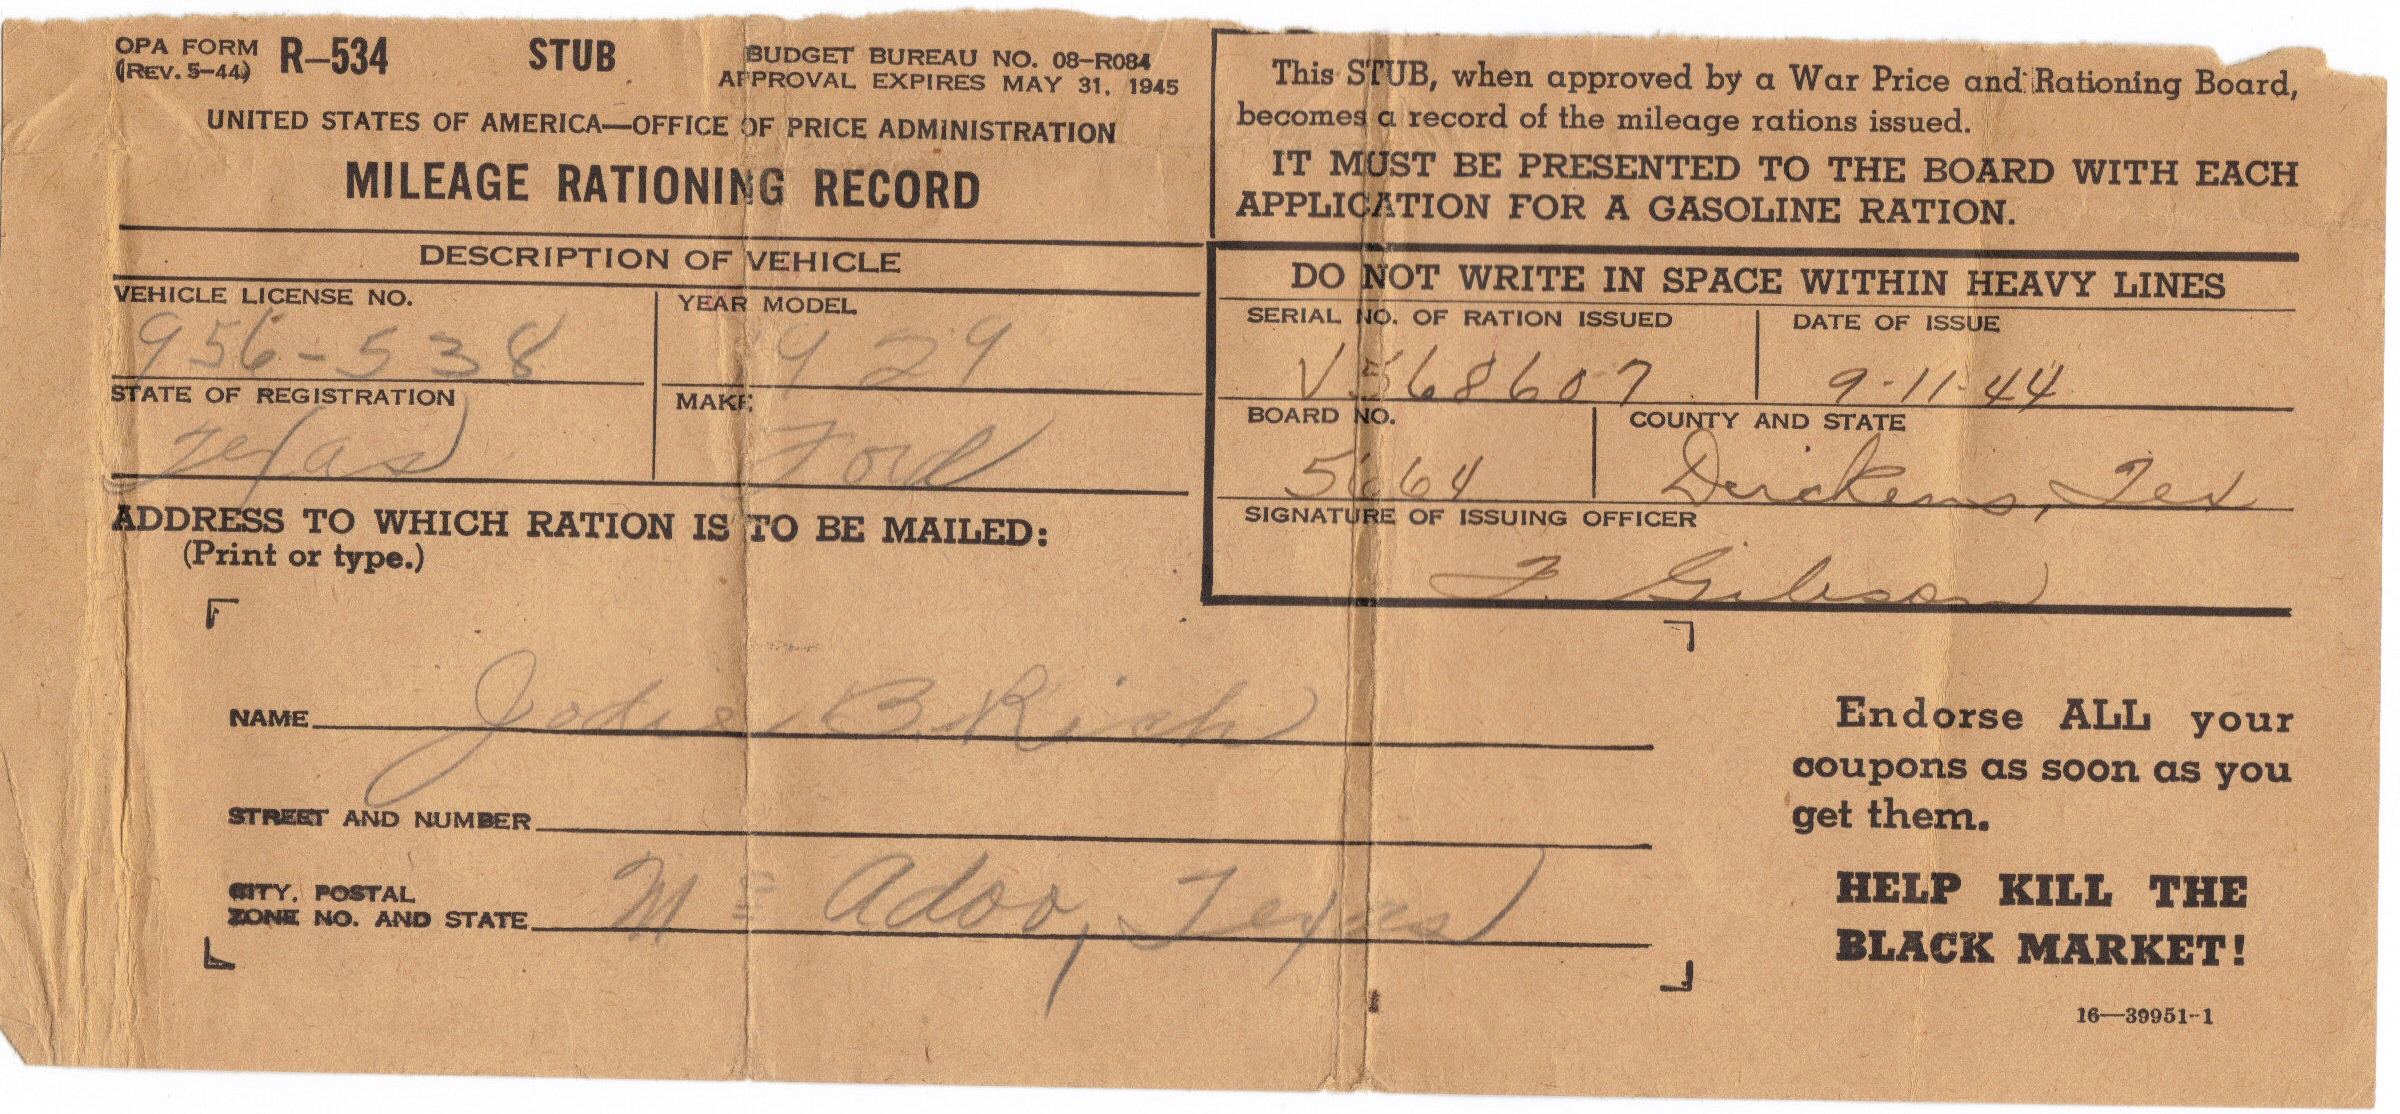 OPA FORM R–534 STUB BUDGET BUREAU NO. 08–R084
(REV. 5–44) APPROVAL EXPIRES MAY 31, 1945
UNITED STATES OF AMERICA—OFFICE OF PRICE ADMINISTRATION
MILEAGE RATIONING RECORD
DESCRIPTION OF VEHICLE
VEHICLE LICENSE NO. YEAR MODEL
956-538 1929
STATE OF REGISTRATION MAKE
Texas Ford
ADDRESS TO WHICH RATION IS TO BE MAILED:
(Print or type.)
This STUB, when approved by a War Price and Rationing Board,
becomes a record of the mileage rations issued.
IT MUST BE PRESENTED TO THE BOARD WITH EACH
APPLICATION FOR A GASOLINE RATION.
DO NOT WRITE IN SPACE WITHIN HEAVY LINES
SERIAL NO. OF RATION ISSUED DATE OF ISSUE
V568607 9-11-44
BOARD NO. COUNTY AND STATE
5664 Dickens, Tex
SIGNATURE OF ISSUING OFFICER
F. Gibson
NAME Jodie B. Rich
STREET AND NUMBER
CITY, POSTAL
ZONE NO. AND STATE Mc Adoo, Texas
Endorse ALL your
coupons as soon as you
get them.
HELP KILL THE
BLACK MARKET!
16—39951-1